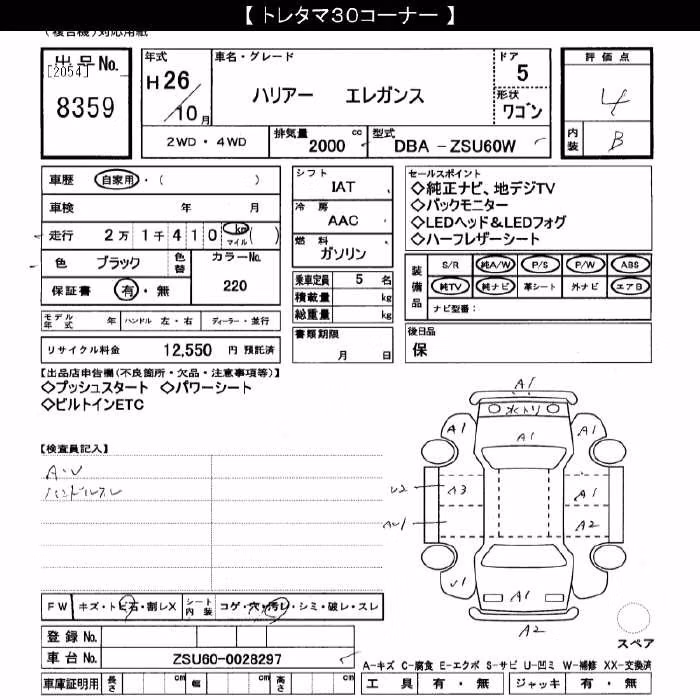 【 トレタマ30コーナー 】
(複合機)対応用紙
出品No.
[2054]
8359
年式
H26
10月
車名・グレード
ハリアー エレガンス
ドア
5
形状
ワゴン
評価点
4
内装
B
2WD・4WD
排気量
2000 cc
型式
DBA -ZSU60W
車歴 自家用・( )
車検 年 月
走行 2万1千410 km マイル ( )
色 ブラック 色替
カラーNo.
220
保証書 有・無
モデル年式 年 ハンドル 左・右 ディーラー・並行
リサイクル料金 12,550 円 預託済
シフト
IAT
冷房
AAC
燃料
ガソリン
乗車定員 5 名
積載量 kg
総重量 kg
書類期限
月 日
セールスポイント
◇純正ナビ、地デジTV
◇バックモニター
◇LEDヘッド&LEDフォグ
◇ハーフレザーシート
装備品
S/R 純A/W P/S P/W ABS
純TV 純ナビ 革シート 外ナビ エアB
ナビ型番:
後日品
保
【出品店申告欄(不良箇所・欠品・注意事項等)】
◇プッシュスタート ◇パワーシート
◇ビルトインETC
【検査員記入】
A・U
ハンドルスレ
A1
水トリ
A1 A1 A1
U2 A3 A1
AU1 A2
U1 A1
A2
スペア
FW キズ・トビ石・割レX シート内装 コゲ・穴・汚レ・シミ・破レ・スレ
登録 No.
車台 No. ZSU60-0028297
車庫証明用 長さ cm 幅 cm 高さ cm
A-キズ C-腐食 E-エクボ S-サビ U-凹ミ W-補修 XX-交換済
工具 有・無 ジャッキ 有・無